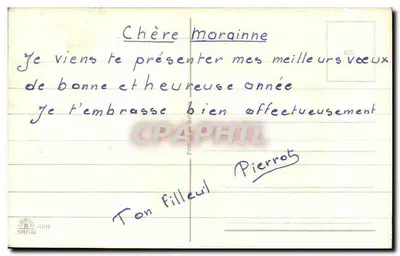 Chère Morainne
Je viens te présenter mes meilleurs vœux
de bonne et heureuse année
Je t'embrasse bien affectueusement
CPAPHIL
Pierrot
Ton Filleul